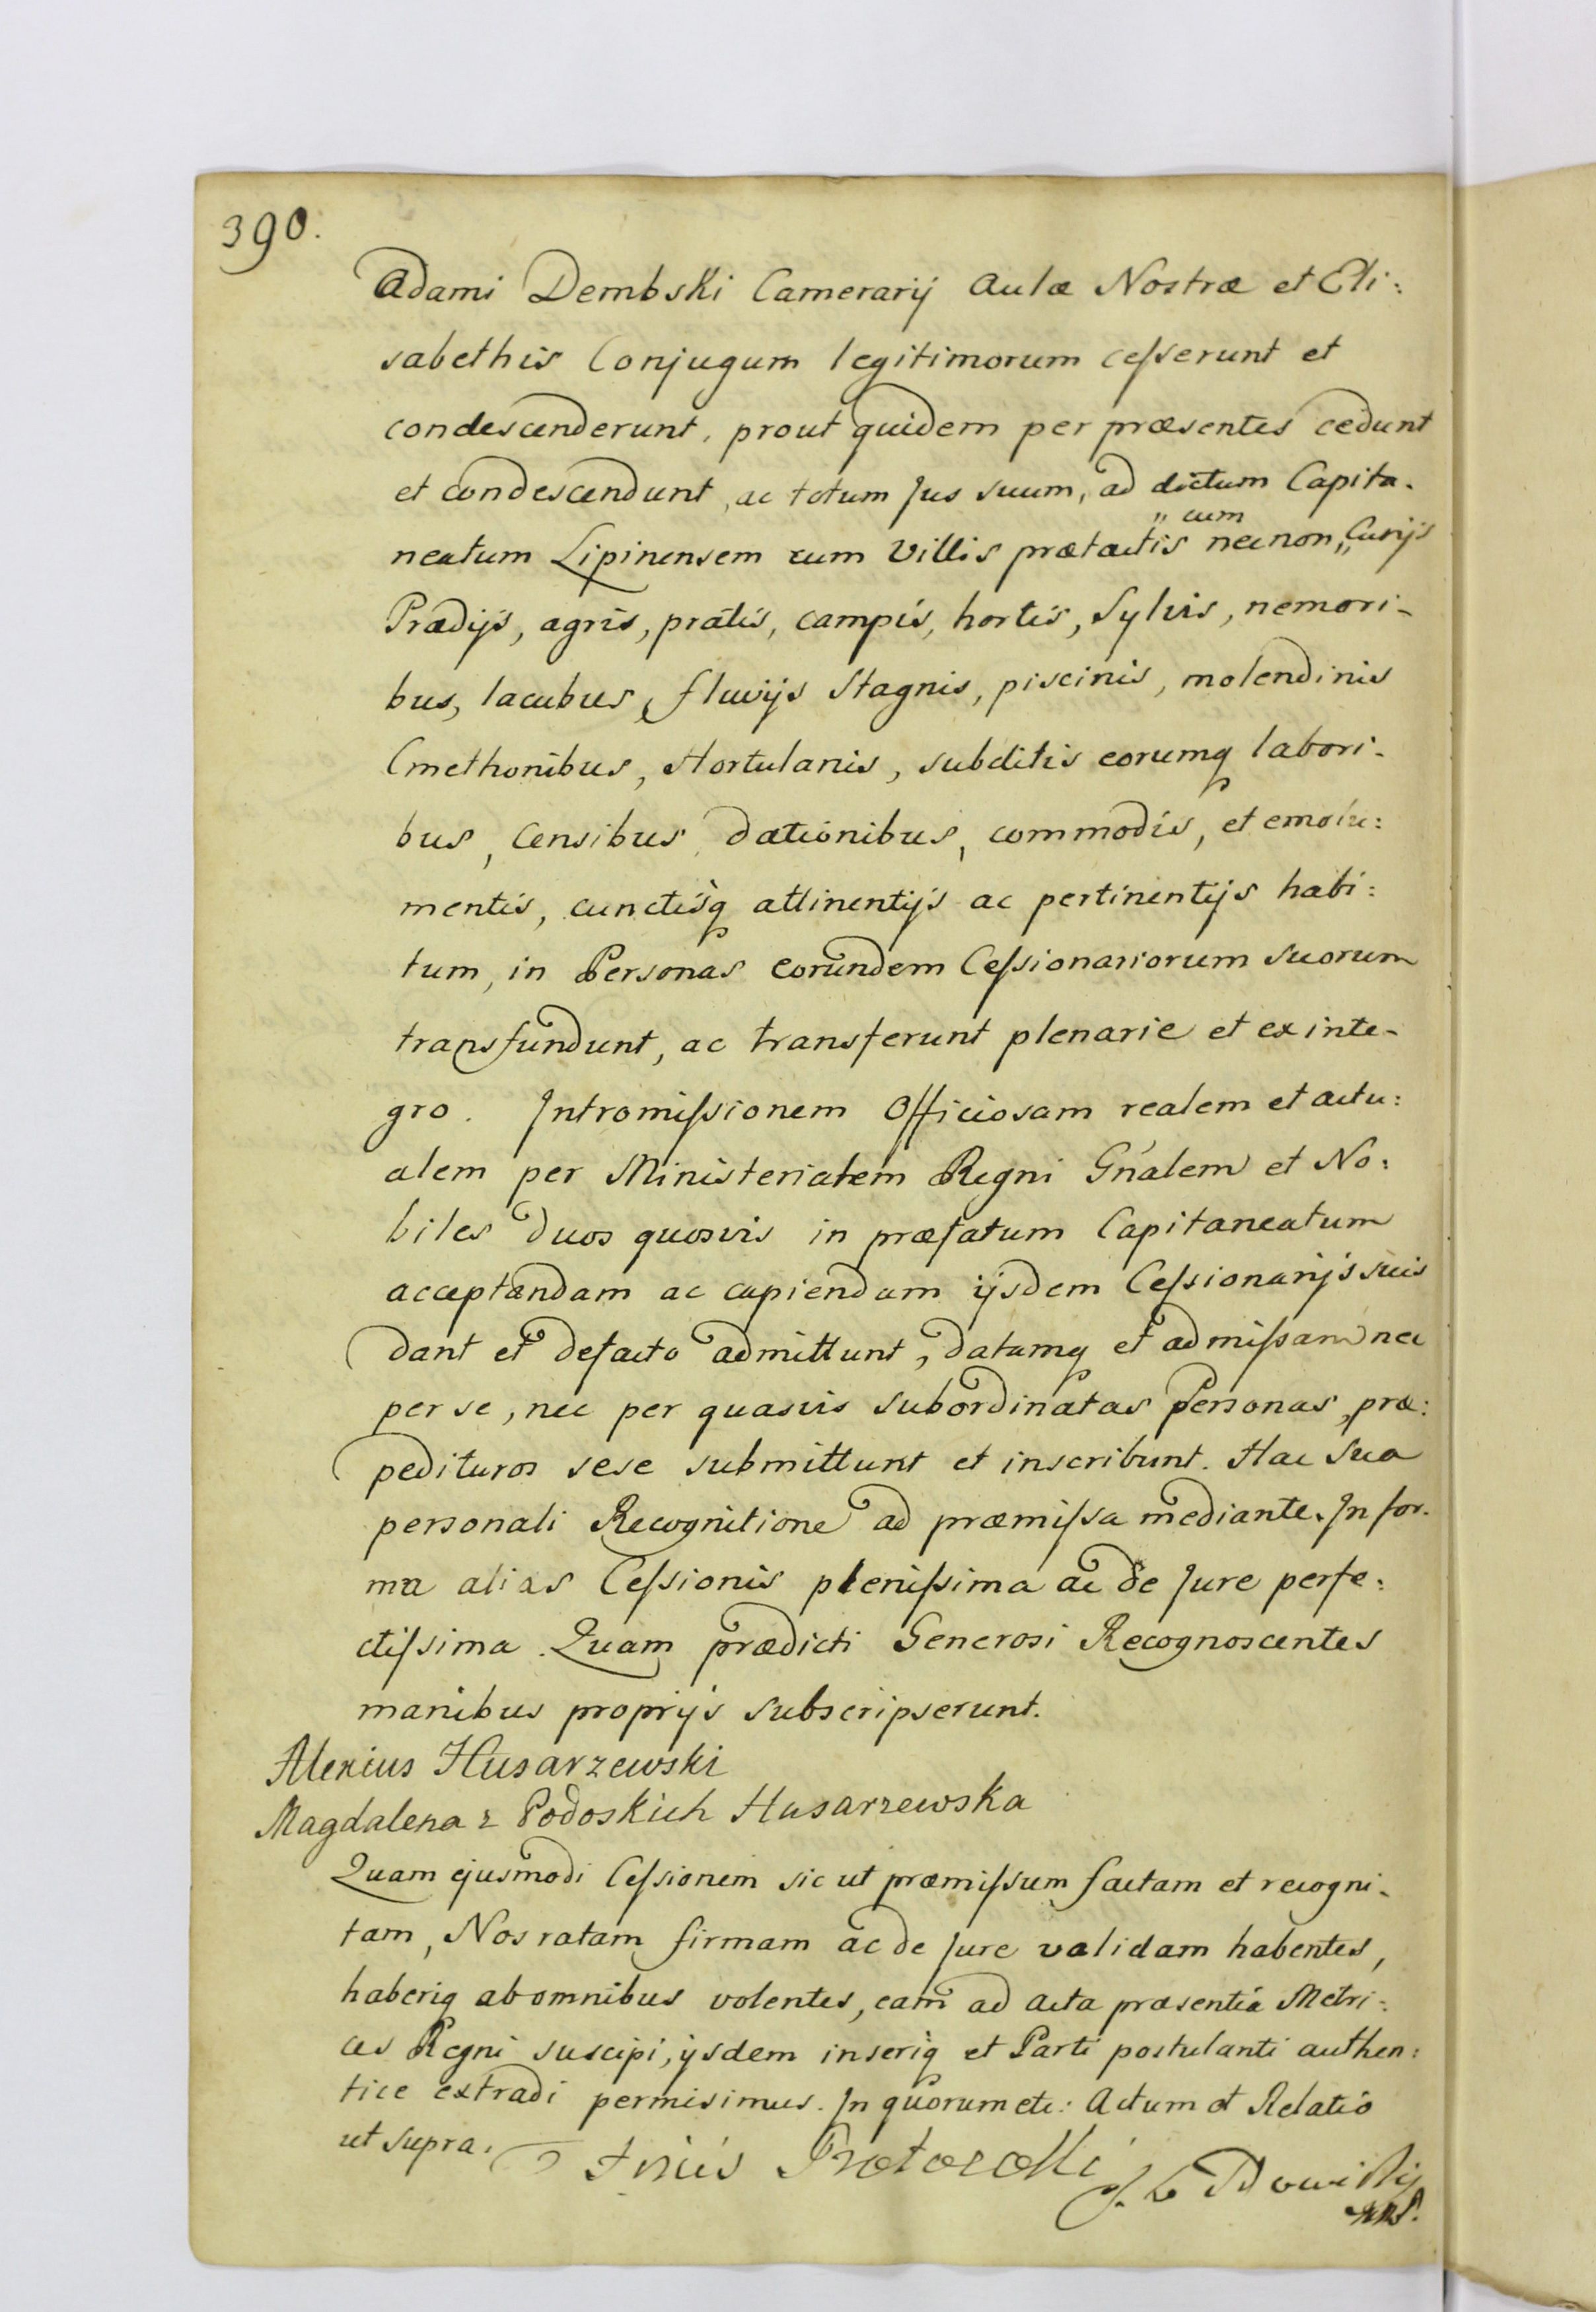 390.
Adami Dembski Camerarij Aulæ Nostræ et Eli:
sabethis Conjugum legitimorum cesserunt et
condescenderunt, prout quidem per præsentes cedunt
et condescendunt, ac totum Jus suum, ad dictum Capita-
„ cum
neatum Lipinensem cum Villis prætactis necnon „ Curijs
Prædijs, agris, pratis, campis, hortis, Sylvis, nemori-
bus, lacubus, fluvijs Stagnis, piscinis, molendinis
Cmethonibus, Hortulanis, subditis eorumq labori-
bus, Censibus, dationibus, commodis, et emolu:
mentis, cunctisq attinentijs ac pertinentijs habi:
tum, in Personas eorundem Cessionariorum suorum
transfundunt, ac transferunt plenarie et ex inte-
gro. Intromissionem Officiosam realem et actu:
alem per Ministerialem Regni Gnalem et No:
biles duos quosvis in præfatum Capitaneatum
acceptandam ac capiendam ijsdem Cessionarijs suis
dant et defacto admittunt, datamq et admissam nec
per se, nec per quasvis subordinatas Personas, præ:
pedituros sese submittunt et inscribunt. Hac Sua
personali Recognitione ad præmissa mediante. In for-
ma alias Cessionis plenissima ac de Jure perfe:
ctissima. Quam prædicti Generosi Recognoscentes
manibus proprijs subscripserunt.
Alexius Husarzewski
Magdalena z Podoskich Husarzewska
Quam ejusmodi Cessionem sic ut præmissum factam et recogni-
tam, Nos ratam firmam ac de Jure validam habentes,
haberiq ab omnibus volentes, eam ad Acta præsentia Metri:
ces Regni suscipi, ijsdem inseriq et Parti postulanti authen:
tice extradi permisimus. In quorum etc: Actum et Relatio
ut supra.
Finis Protocolli